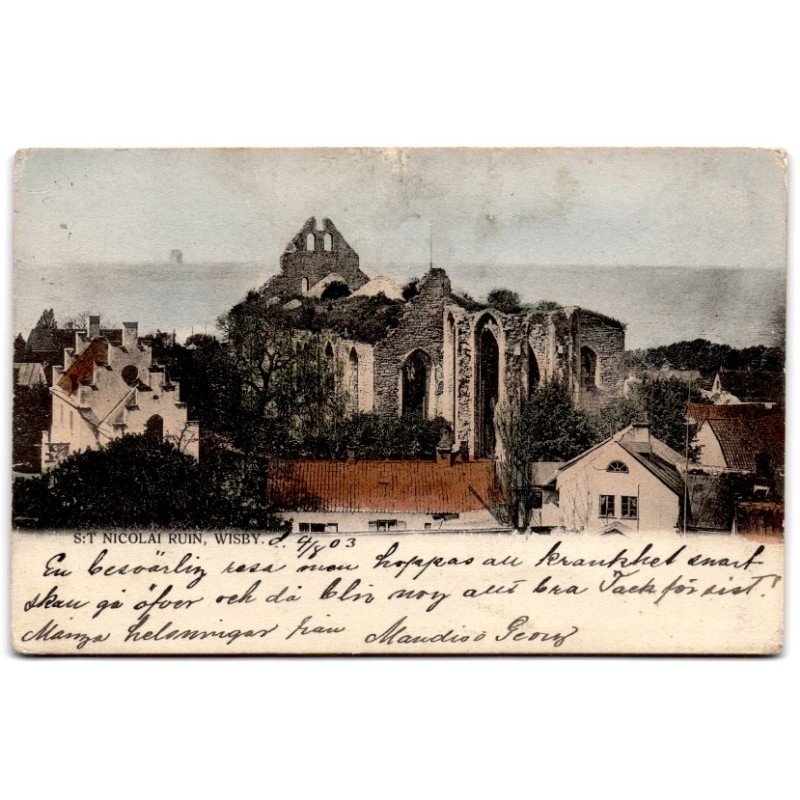 S:T NICOLAI RUIN, WISBY. d. 9/8 03
En besvärlig resa man hoppas att krankhet snart
skan gå öfver och då blir nog allt bra Tack för sist!
Många helsningar från Georg